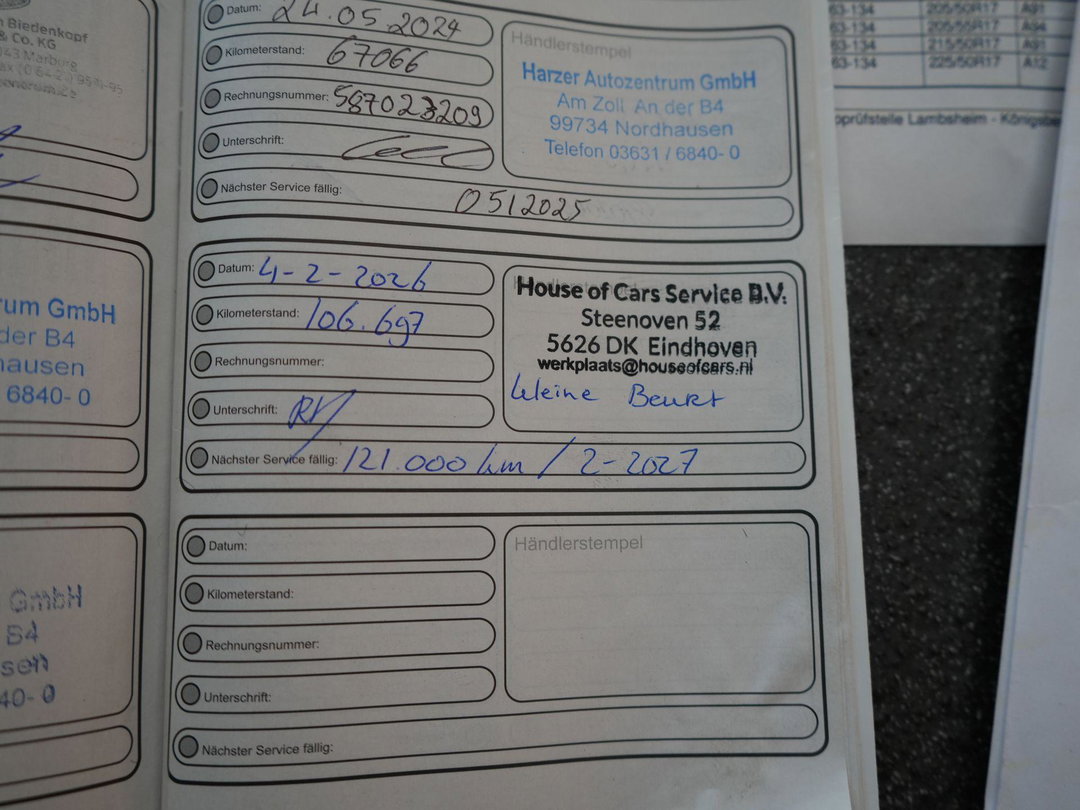 n Biedenkopf
& Co. KG
043 Marburg
um GmbH
der B4
hausen
6840- 0
GmbH
B4
sen
40- 0
Datum: 24.05.2024
Kilometerstand: 67066
Rechnungsnummer: 587023209
Unterschrift:
Nächster Service fällig: 05/2025
Händlerstempel
Harzer Autozentrum GmbH
Am Zoll An der B4
99734 Nordhausen
Telefon 03631 / 6840- 0
Datum: 4-2-2026
Kilometerstand: 106.697
Rechnungsnummer:
Unterschrift: RV
Nächster Service fällig: 121.000 km / 2-2027
House of Cars Service B.V.
Steenoven 52
5626 DK Eindhoven
werkplaats@houseofcars.nl
kleine Beurt
Datum:
Kilometerstand:
Rechnungsnummer:
Unterschrift:
Nächster Service fällig:
Händlerstempel
63-134 205/50R17 A91
63-134 205/50R17 A94
63-134 215/50R17 A91
63-134 225/50R17 A12
prüfstelle Lambsheim - Königsbe